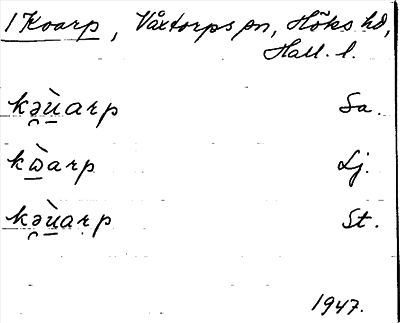 1 Kvarp, Våxtorps sn, Höks hd,
Hall. l.
kə̯ù̲arp Sa.
kὼ̲arp Lj.
kə̯ù̲arp St.
1947.